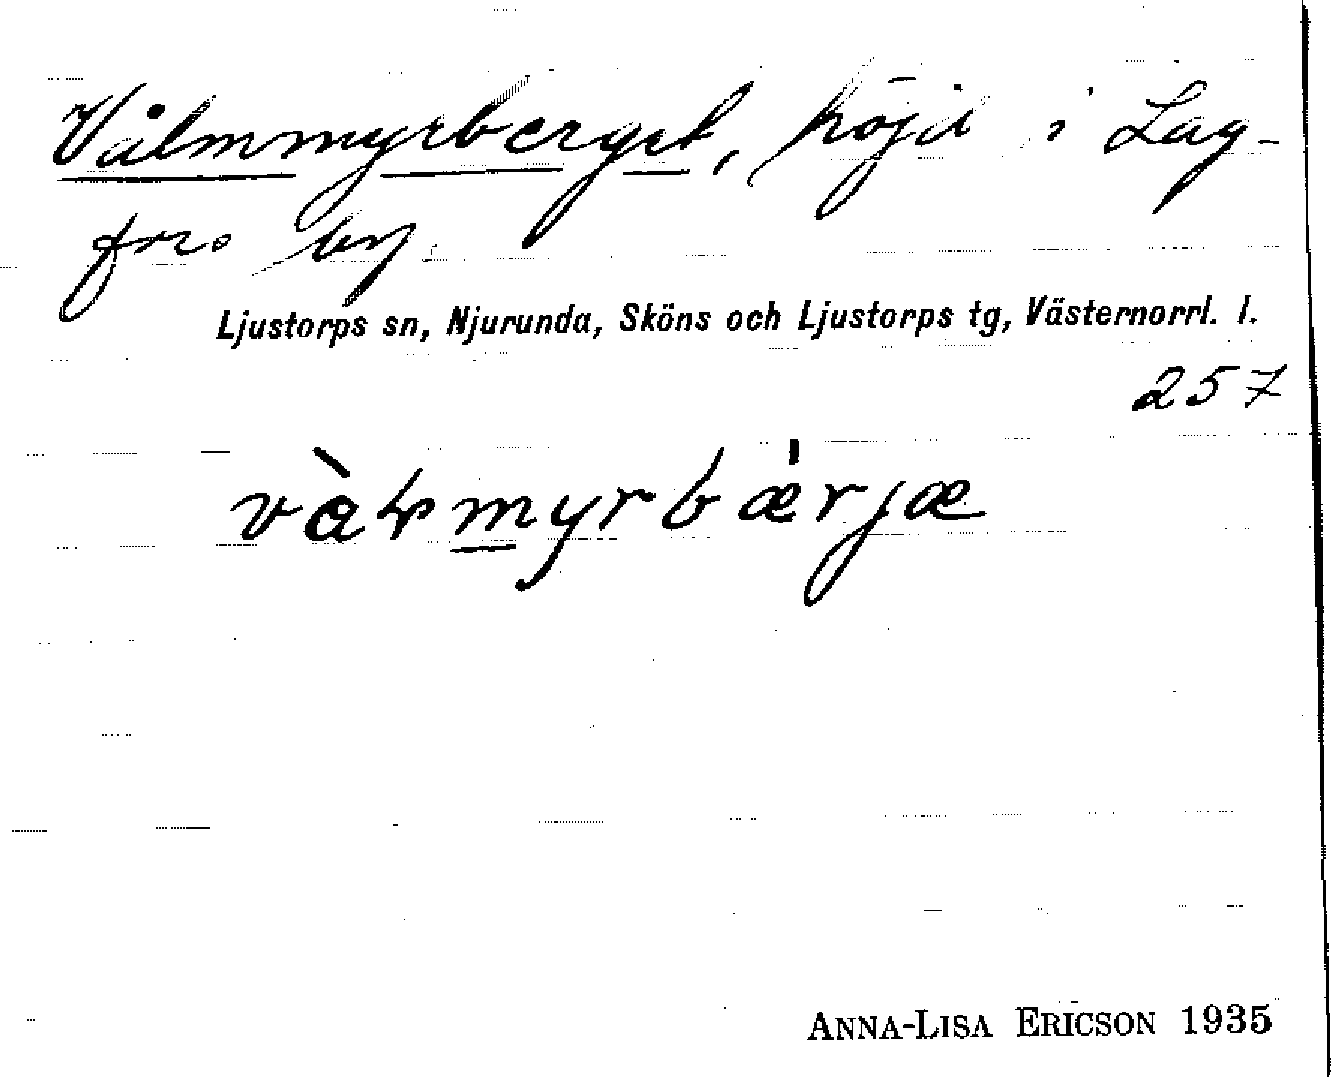 Vålmmyrberget, höjd i Lag-
fors by.
Ljustorps sn, Njurunda, Sköns och Ljustorps tg, Västernorrl. l.
257
ANNA-LISA ERICSON 1935